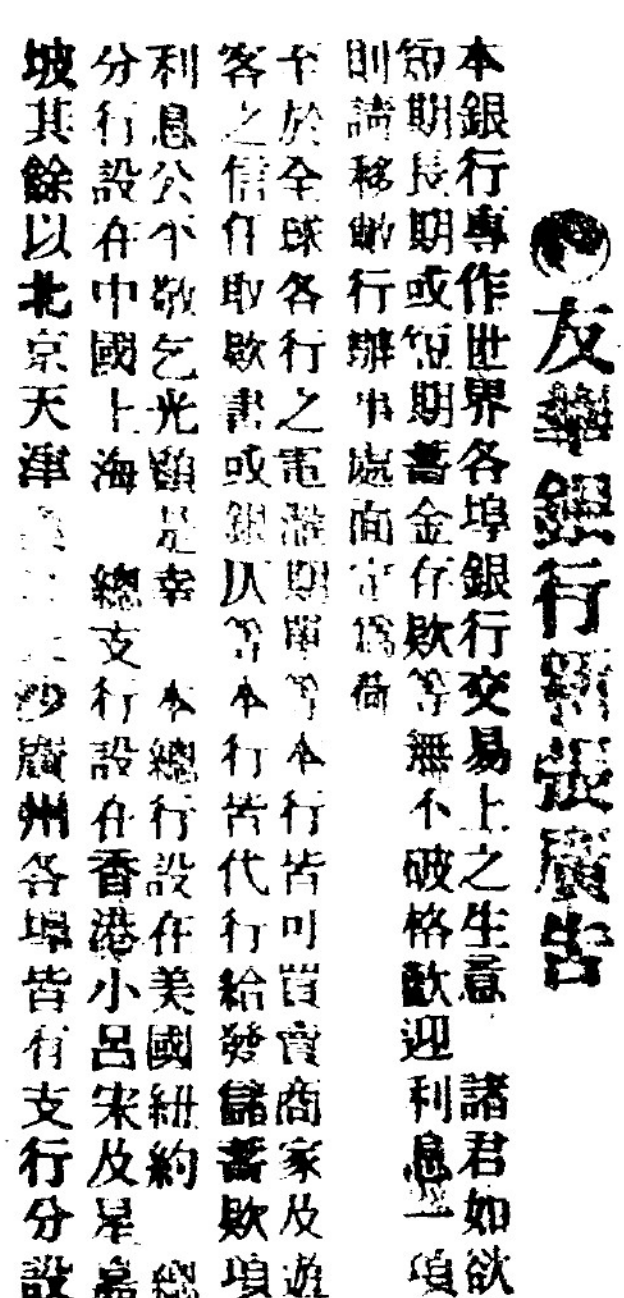 友華銀行新張廣告
本銀行專作世界各埠銀行交易上之生意 諸君如欲
短期長期或短期蓄金存欵等無不破格歡迎利息一項
則請移敝行辦事處面定為荷
至於全球各行之電滙期單等本行皆可買賣商家及遊
客之信件取欵書或銀以等本行皆代行給發儲蓄欵項
利息公平敬乞光顧是幸 本總行設在美國紐約 總
分行設在中國上海 總支行設在香港小呂宋及星嘉
坡其餘以北京天津 沙廣州各埠皆有支行分設